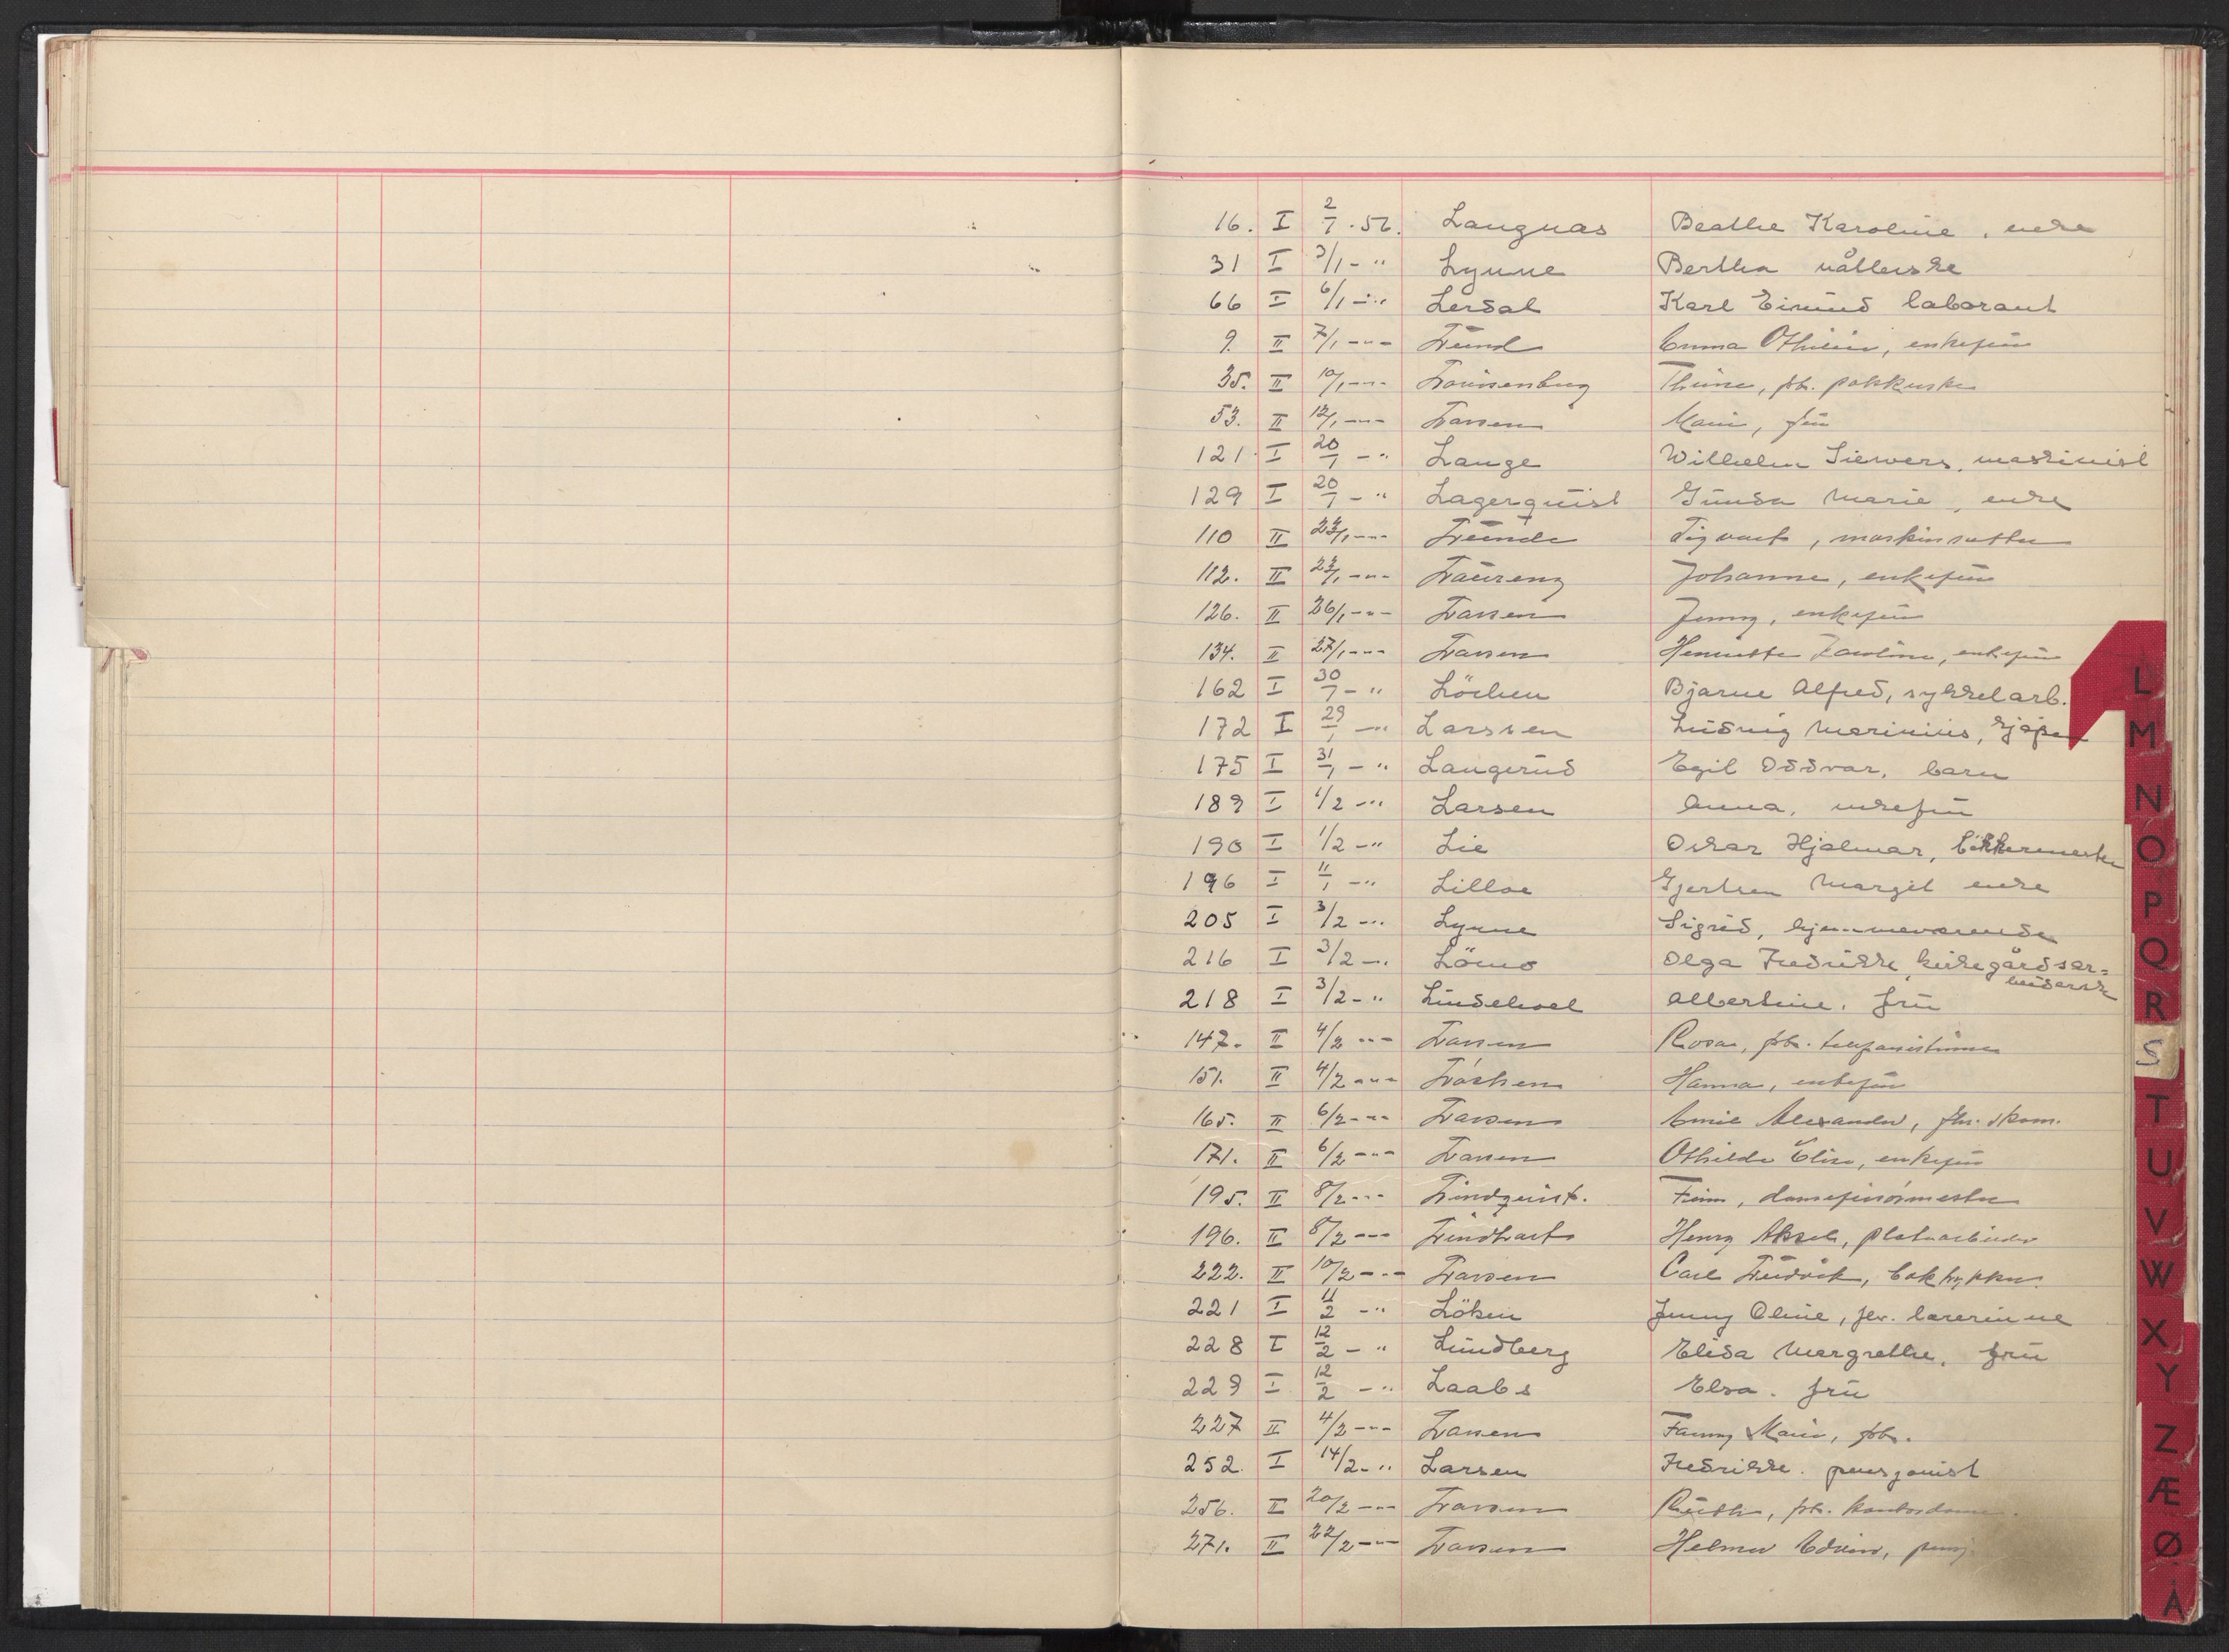 16. I 2/1 . 56. Langnas Beathe Karoline, enke
31 I 3/1 - " Lynne Bertha nåtlerske
66 I 6/1 - " Lerdal Karl Eivind laborant
9. II 7/1 - " - Lund Emma Othilie, enkefrü
35. II 10/1 - " - Louisenburg Thime, frk. pakkerske
53. II 12/1 - " - Larsen Marie, frü
121 I 20/1 - " Lange Wilhelm Siewers, maskinist
129 I 20/1 - " Lagerquist Günda Marie, enke
110 II 23/1 - " - Lünde Sigvart, maskinsetter
112. II 23/1 - " - Laüreng Johanne, enkefrü
126. II 26/1 - " - Larsen Jenny, enkefrü
134. II 27/1 - " - Larsen Henriette Karoline, enkefrü
162 I 30/1 - " Löchen Bjarne Alfred, sykkelarb.
172 I 29/1 - " Larssen Lüdvig Marinius,
175 I 31/1 - " Langerüd Egil Oddvar, barn
189 I 1/2 - " Larsen Anna, enkefrü
190 I 1/2 - " Lie Oskar Hjalmar, bökkermester
196 I 11/1 - " Lilloe Gjertsen Margit enke
205 I 3/2 - " Lynne Sigrid, hjemmeværende
216 I 3/2 - " Lömo Olga Fredrikke, kirkegårdsar=
beiderske
218 I 3/2 - " Lindehoel Albertine, frü
147. II 4/2 - " - Larsen Rosa, frk. telefonistinne
151. II 4/2 - " - Löchen Hanna, enkefrü
165. II 6/2 - " - Larsen Emil Alexander, fhv. skom.
171. II 6/2 - " - Larsen Othilde Elise, enkefrü
195. II 8/2 - " - Lindquist. Finn, damefrisörmester
196. II 8/2 - " - Lindtvart Henry Aksel, platearbeider
222. II 10/2 - " - Larsen Carl Fredrik, boktrykker
221 I 11/2 - " Löken Jenny Oline, fhv. lærerinne
228 I 12/2 - " Lündberg Elida Margrethe, frü
229 I 12/2 - " Laabs Elsa. frü
227 II 4/2 - " - Larsen Fanny Marie, frk.
252. I 14/2 - " Larsen Fredrikke. pensjonist
256. II 20/2 - " - Larsen Rüth, frk. kontordame.
271. II 22/2 - " - Larsen Helmer Edvin, pensj
L
M
N
O
P
Q
R
S
T
U
V
W
X
Y
Z
Æ
Ø
Å